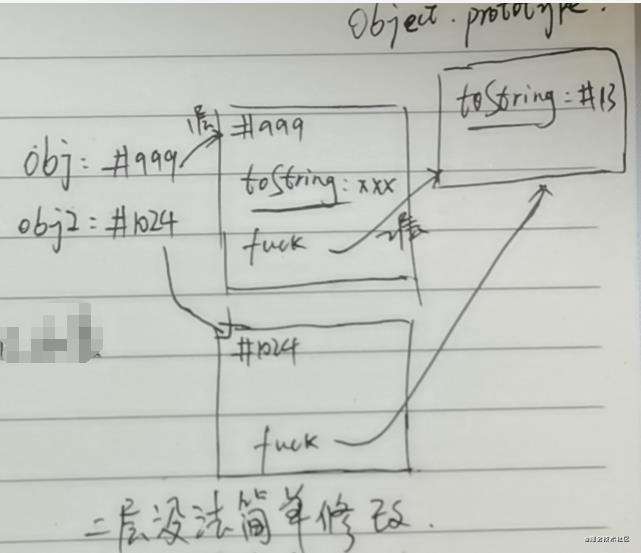 Object.prototype.
toString: #13
1层
#999
obj: #999
toString: xxx
obj2: #1024
fuck
2层
#1024
fuck
二层没法简单修改.